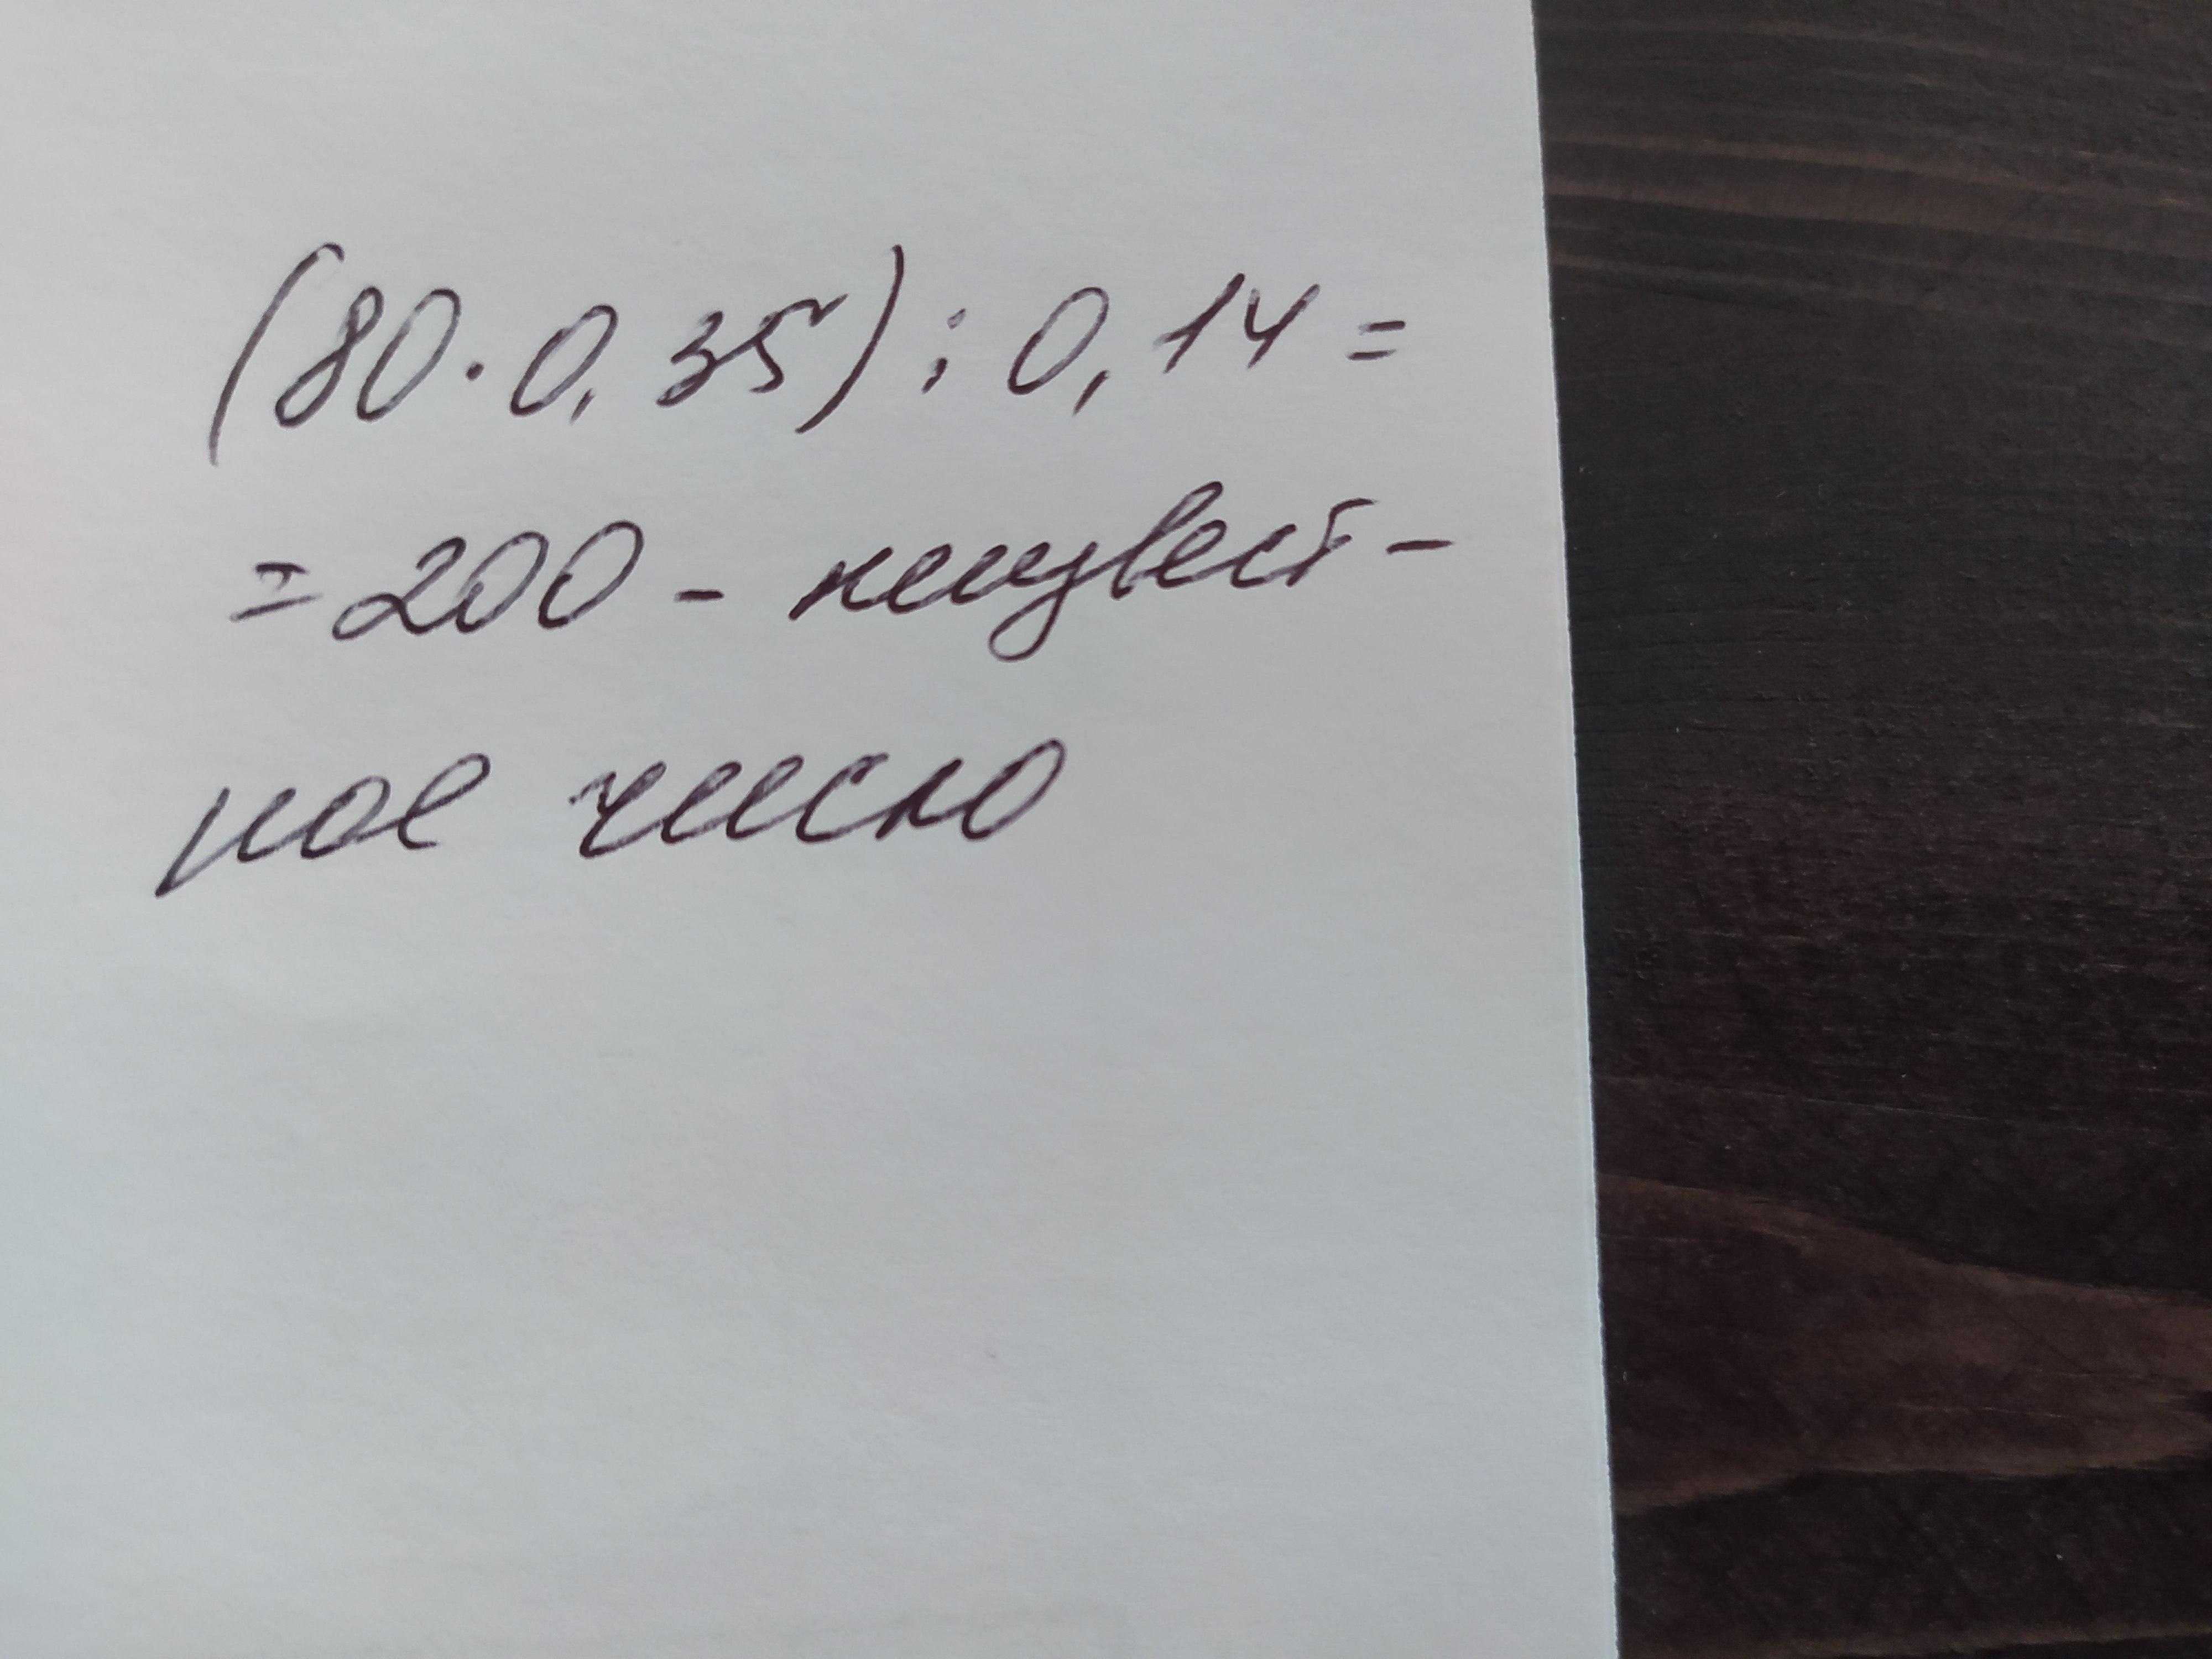 (80·0,35):0,14=
=200 - неизвест-
ное число